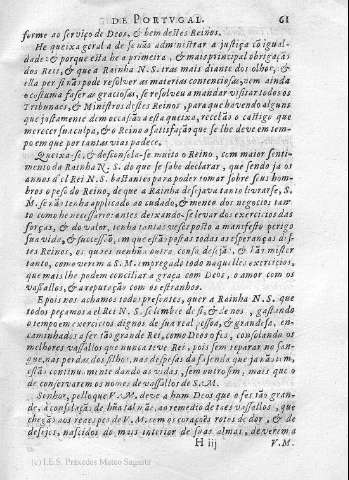 DE PORTVGAL. 61
forme ao seruiço de Deos, & bem destes Reinos.
He queixa geral a de se não administrar a justiça cõ igual-
dade: & porque esta he a primeira, & mais principal obrigação
dos Reis, & que a Rainha N. S. tras mais diante dos olhos, &
ella per si não pode resoluer as materias contenciosas, nem ainda
o costuma fazer as graciosas, se resolueu a mandar visitar todos os
Tribunaes, & Ministros destes Reinos, para que hauendo alguns
que justamente dem occasião a esta queixa, receBão o castigo que
merecer sua culpa, & o Reino a satisfação que se lhe deue em tem-
po em que por tantas vias padece.
Queixa-se, & desconsola-se muito o Reino, com maior senti-
mento da Rainha N. S. do que se sabe declarar, que sendo ja os
annos d'el Rei N. S. bastantes para poder tomar sobre seus hom-
bros o peso do Reino, de que a Rainha desejaua tanto liurarse, S.
M. se não tenha applicado ao cuidado, & meneo dos negocios tan-
to como he necessario: antes deixando-se leuar dos exercicios das
forças, & do valor, tenha tantas vezes posto a manifesto perigo
sua vida, & successão, em que estão postas todas as esperanças dés-
tes Reinos, os quaes nenhũa outra cousa desejão, & hão mister
tanto, como verem a S. M. impregado todo naquelles exercicios,
que mais lhe podem conciliar a graça com Deos, o amor com os
vassallos, & a reputação com os estranhos.
E pois nos achamos todos presentes, quer a Rainha N. S. que
todos peçamos a el Rei N. S. se lembre de si, & de nos, gastando
o tempo em exercicios dignos de sua real pessoa, & grandesa, en-
caminhados a ser tão grande Rei, como Deos o fes, consolando os
melhores vassallos que nunca teue Rei, pois sem reparar no san-
gue, nas perdas dos filhos, nas despesas da fasenda que ja não tem,
estão continuamente dando as vidas, sem outro fim, mais que o
de conseruarem os nomes de vassallos de S. M.
Senhor, pello que V. M. deue a hum Deos que o fes tão gran-
de, à consolação de hũa tal mãi, ao remedio de taes vassallos, que
chegão aos reaes pes de V. M. sem os corações rotos de dor, & de
desejos, nascidos do mais interior de suas almas, deuemos a
H iij V. M.
(c) I.E.S. Práxedes Mateo Sagasta